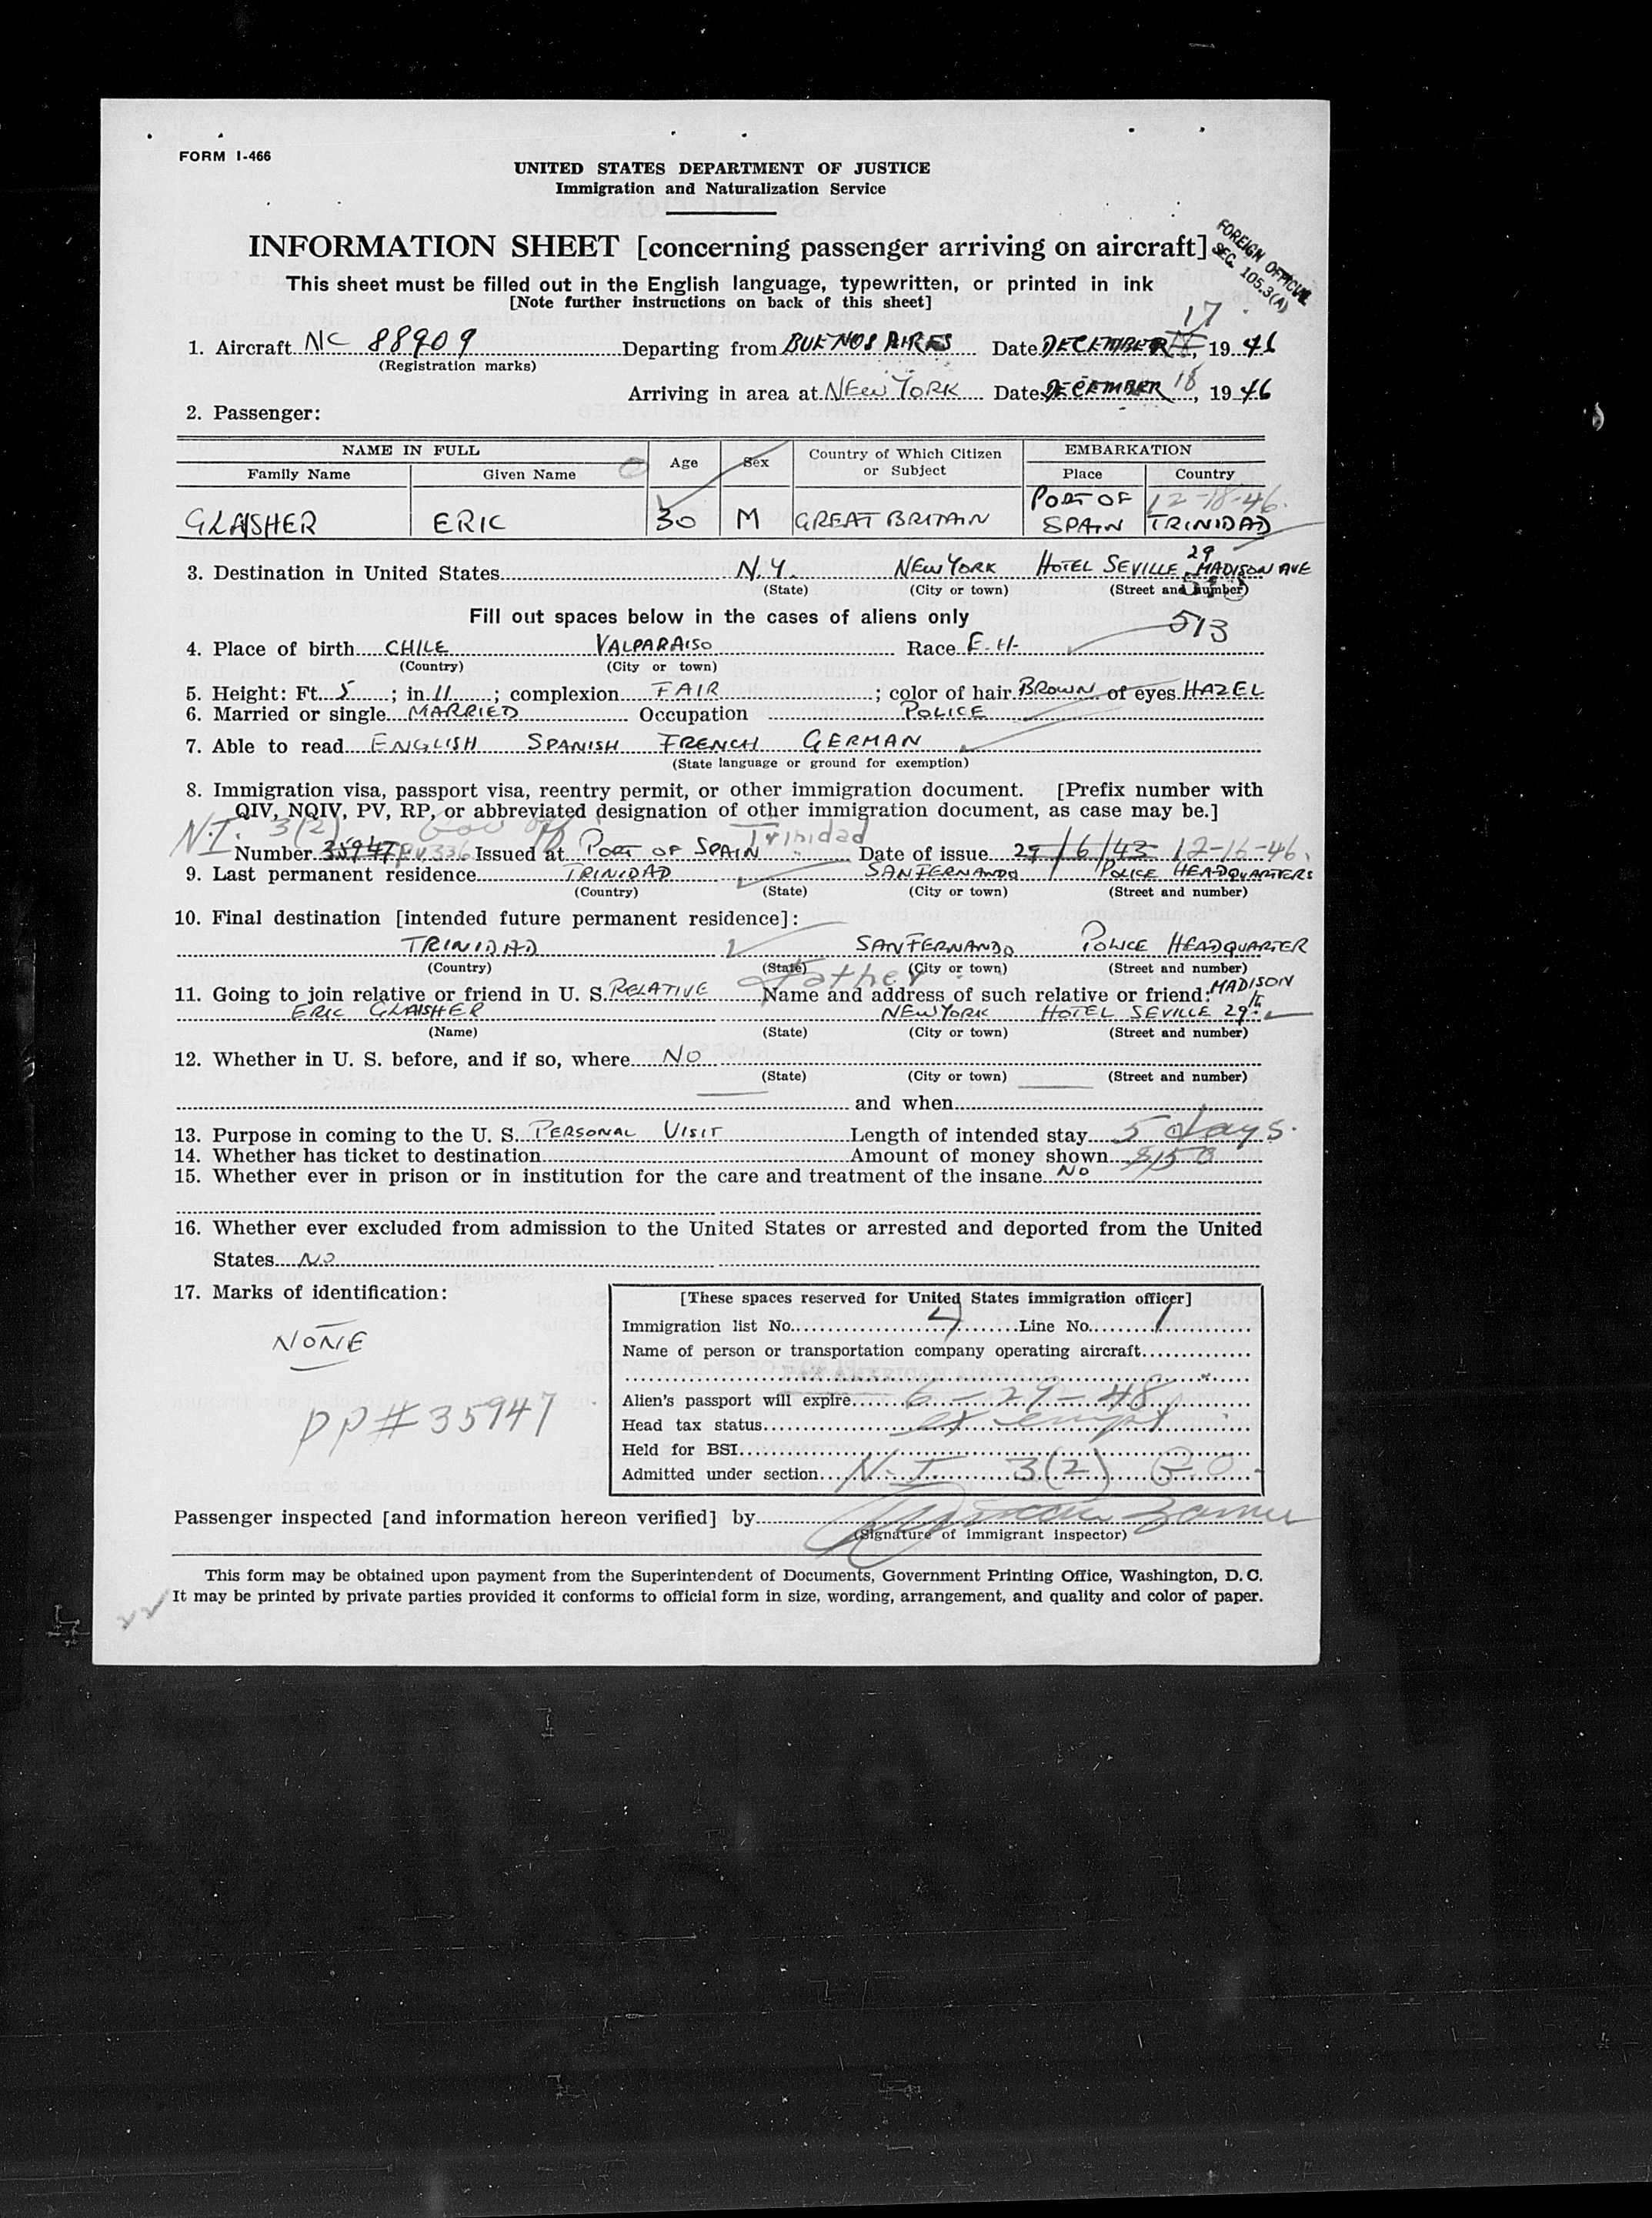 FORM I-466
UNITED STATES DEPARTMENT OF JUSTICE
Immigration and Naturalization Service
INFORMATION SHEET [concerning passenger arriving on aircraft]
FOREIGN OFFICIAL
SEC. 105.3(A)
This sheet must be filled out in the English language, typewritten, or printed in ink
[Note further instructions on back of this sheet]
17
1. Aircraft NC 88909 Departing from BUENOS AIRES Date DECEMBER, 19 46
(Registration marks)
Arriving in area at NEW YORK Date DECEMBER 18, 19 46
2. Passenger:
NAME IN FULL Age Sex Country of Which Citizen or Subject EMBARKATION
Family Name Given Name Place Country
GLAISHER ERIC 30 M GREAT BRITAIN PORT OF SPAIN 12-18-46. TRINIDAD
29
3. Destination in United States N.Y. NEW YORK HOTEL SEVILLE MADISON AVE
(State) (City or town) (Street and number)
Fill out spaces below in the cases of aliens only
513
4. Place of birth CHILE VALPARAISO Race E.H.
(Country) (City or town)
5. Height: Ft. 5; in 11; complexion FAIR; color of hair BROWN of eyes HAZEL
6. Married or single MARRIED Occupation POLICE
7. Able to read ENGLISH SPANISH FRENCH GERMAN
(State language or ground for exemption)
8. Immigration visa, passport visa, reentry permit, or other immigration document. [Prefix number with
QIV, NQIV, PV, RP, or abbreviated designation of other immigration document, as case may be.]
N.I. 3(2) Trinidad
Number 35947 PV336 Issued at PORT OF SPAIN Date of issue 29/6/43 12-16-46.
9. Last permanent residence TRINIDAD SANFERNANDO POLICE HEADQUARTERS
(Country) (State) (City or town) (Street and number)
10. Final destination [intended future permanent residence]:
TRINIDAD SANFERNANDO POLICE HEADQUARTER
(Country) (State) (City or town) (Street and number)
Father
11. Going to join relative or friend in U. S. RELATIVE Name and address of such relative or friend: MADISON
ERIC GLAISHER NEW YORK HOTEL SEVILLE 29
(Name) (State) (City or town) (Street and number)
12. Whether in U. S. before, and if so, where NO
(State) (City or town) (Street and number)
and when
13. Purpose in coming to the U. S. PERSONAL VISIT Length of intended stay 5 days.
14. Whether has ticket to destination Amount of money shown $150
15. Whether ever in prison or in institution for the care and treatment of the insane NO
16. Whether ever excluded from admission to the United States or arrested and deported from the United
States NO
17. Marks of identification:
NONE
PP# 35947
[These spaces reserved for United States immigration officer]
Immigration list No. 4 Line No. 1
Name of person or transportation company operating aircraft
Alien's passport will expire 6-29-48
Head tax status exempt
Held for BSI
Admitted under section N.I. 3(2)
Passenger inspected [and information hereon verified] by
(Signature of immigrant inspector)
This form may be obtained upon payment from the Superintendent of Documents, Government Printing Office, Washington, D. C.
It may be printed by private parties provided it conforms to official form in size, wording, arrangement, and quality and color of paper.